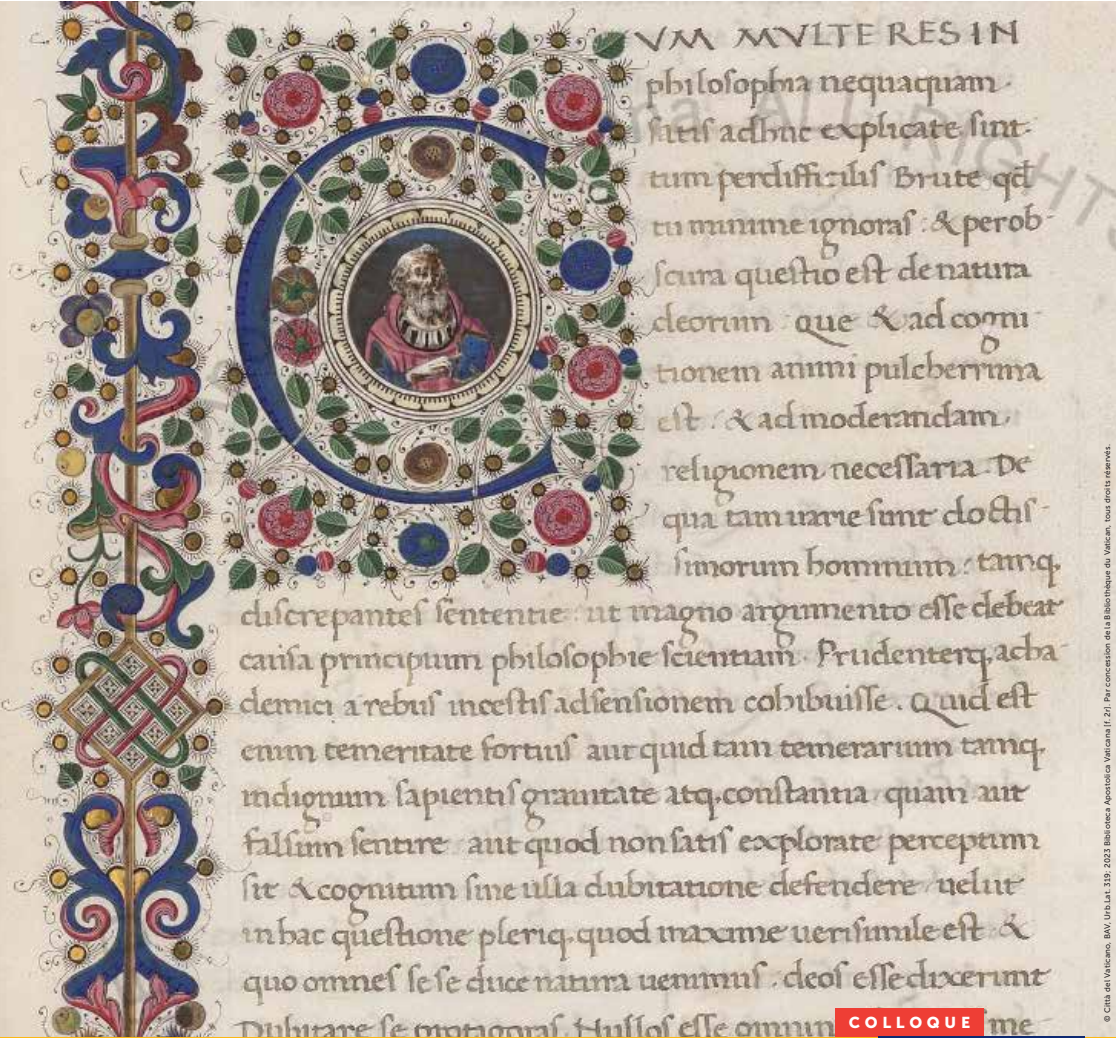 CVM MVLTE RES IN
philosophia nequaquam
satis adhuc explicate sint.
tum perdifficilis Brute qd
tu minime ignoras : & perob-
scura questio est de natura
deorum que & ad cogni-
tionem animi pulcherrima
est . & ad moderandam
religionem necessaria . De
qua tam uarie sunt doctis-
simorum hominum : tamq.
discrepantes sententie : ut magno argumento esse debeat
causa principium philosophie scientiam . Prudenterq. acha-
demici a rebus incertis adsensionem cohibuisse . Quid est
enim temeritate fortius aut quid tam temerarium tamq.
indignum sapientis grauitate atq. constantia quam aut
falsum sentire aut quod non satis explorate perceptum
sit & cognitum sine ulla dubitatione defendere uelut
in hac questione pleriq. quod maxime uerisimile est &
quo omnes sese duce natura uenimus . deos esse dixerunt
Dubitare se protagoras . Nullos esse omnin me
COLLOQUE
© Città del Vaticano, BAV, Urb.Lat. 319; 2023 Biblioteca Apostolica Vaticana (f. 2r). Par concession de la Bibliothèque du Vatican, tous droits réservés.
ALL RIGHTS